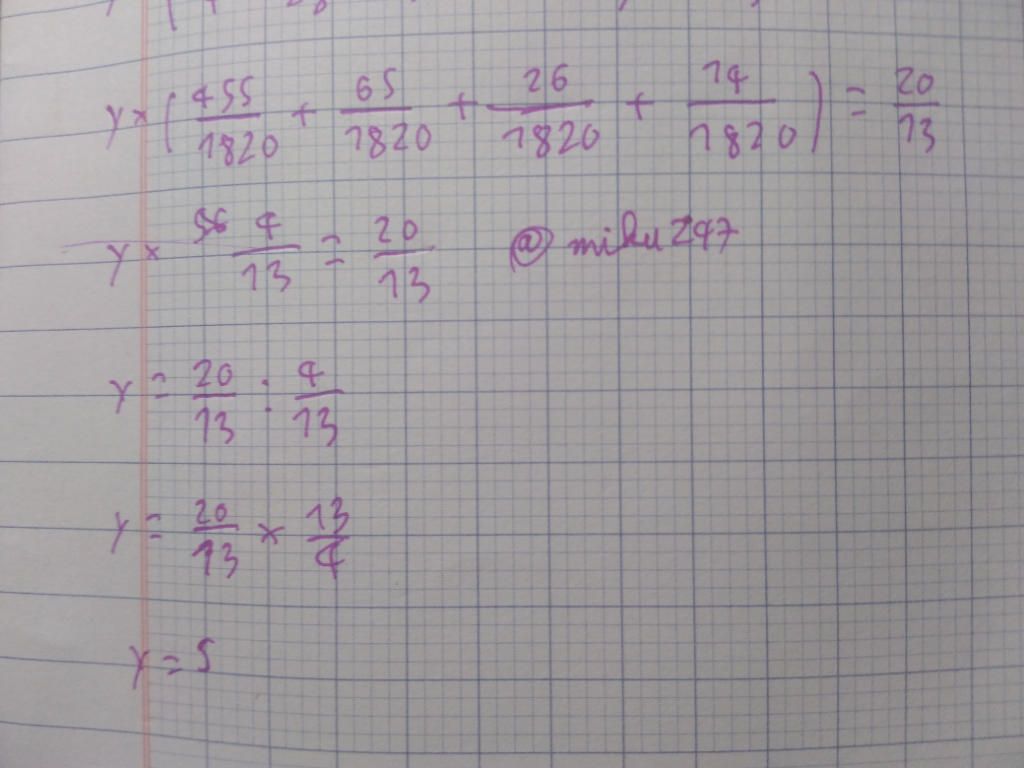 y × ( 455/1820 + 65/1820 + 26/1820 + 14/1820 ) = 20/13
y × 4/13 = 20/13 @miku247
y = 20/13 : 4/13
y = 20/13 × 13/4
y = 5